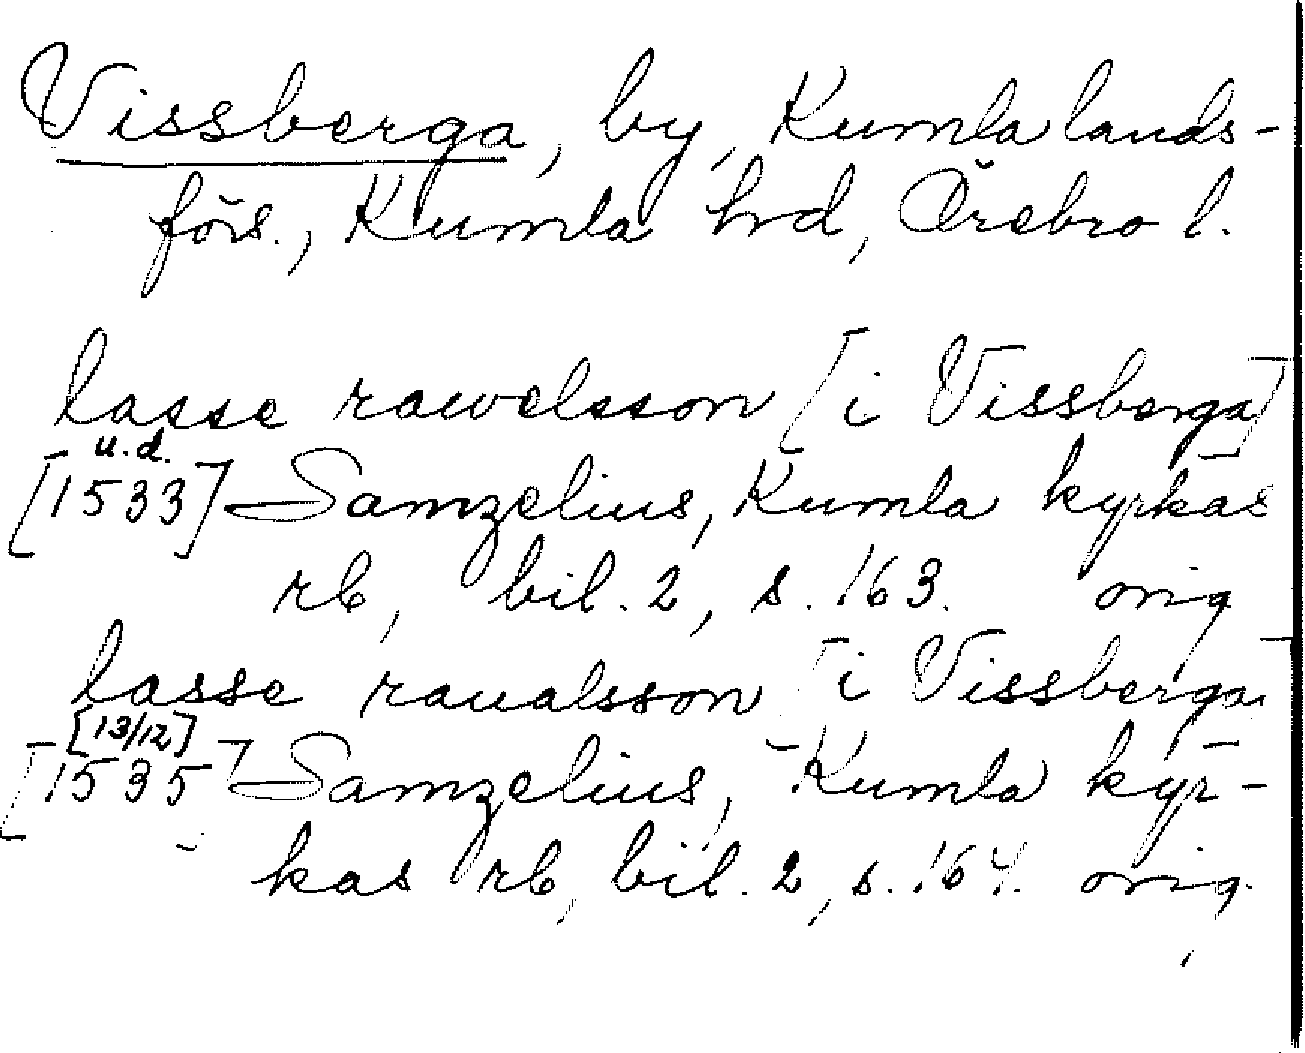 Vissberga, by, Kumla lands-
förs., Kumla hrd, Örebro l.
lasse rawelsson [i Vissberga]
u.d.
[1533] Samzelius, Kumla kyrkas
rb, bil. 2, s. 163. orig
lasse raualsson [i Vissberga]
[13/12]
[1535] Samzelius, Kumla kyr-
kas rb, bil. 2, s. 164. orig.